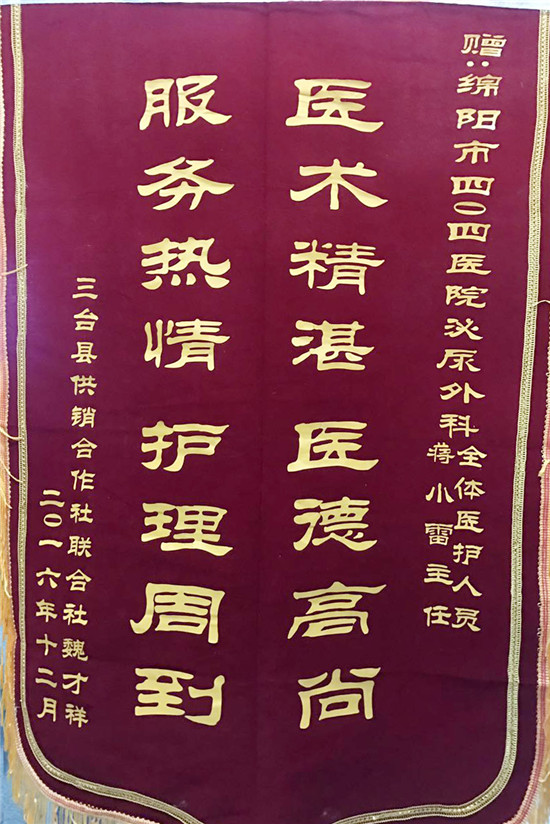 赠：绵阳市四〇四医院泌尿外科全体医护人员
蒋小雷主任
医术精湛 医德高尚
服务热情 护理周到
三台县供销合作社联合社魏才祥
二〇一六年十二月